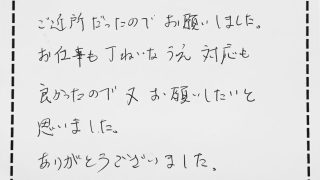 ご近所だったので お願いしました。
お仕事も丁ねいなうえ 対応も
良かったので又 お願いしたいと
思いました。
ありがとうございました。